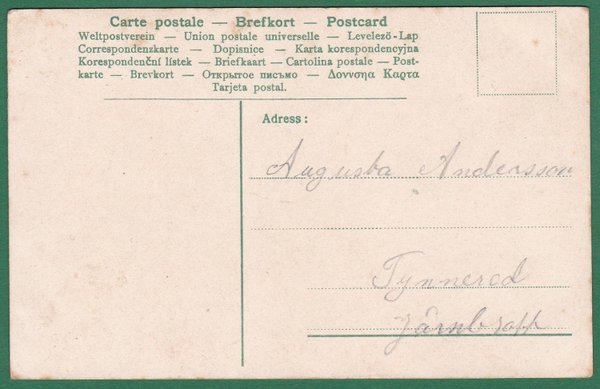 Carte postale — Brefkort — Postcard
Weltpostverein — Union postale universelle — Levelező-Lap
Correspondenzkarte — Dopisnice — Karta korespondencyjna
Korespondenční lístek — Briefkaart — Cartolina postale — Post-
karte — Brevkort — Открытое письмо — Δονυσηα Καρτα
Tarjeta postal.
Adress:
Augusta Andersson
Tynnered